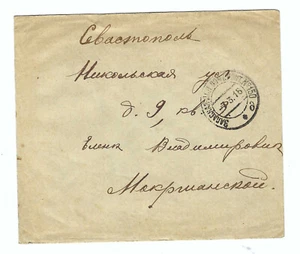 Севастополь
Никольская ул
д. 9, кв
Елене Владимировне
Мокржанской.